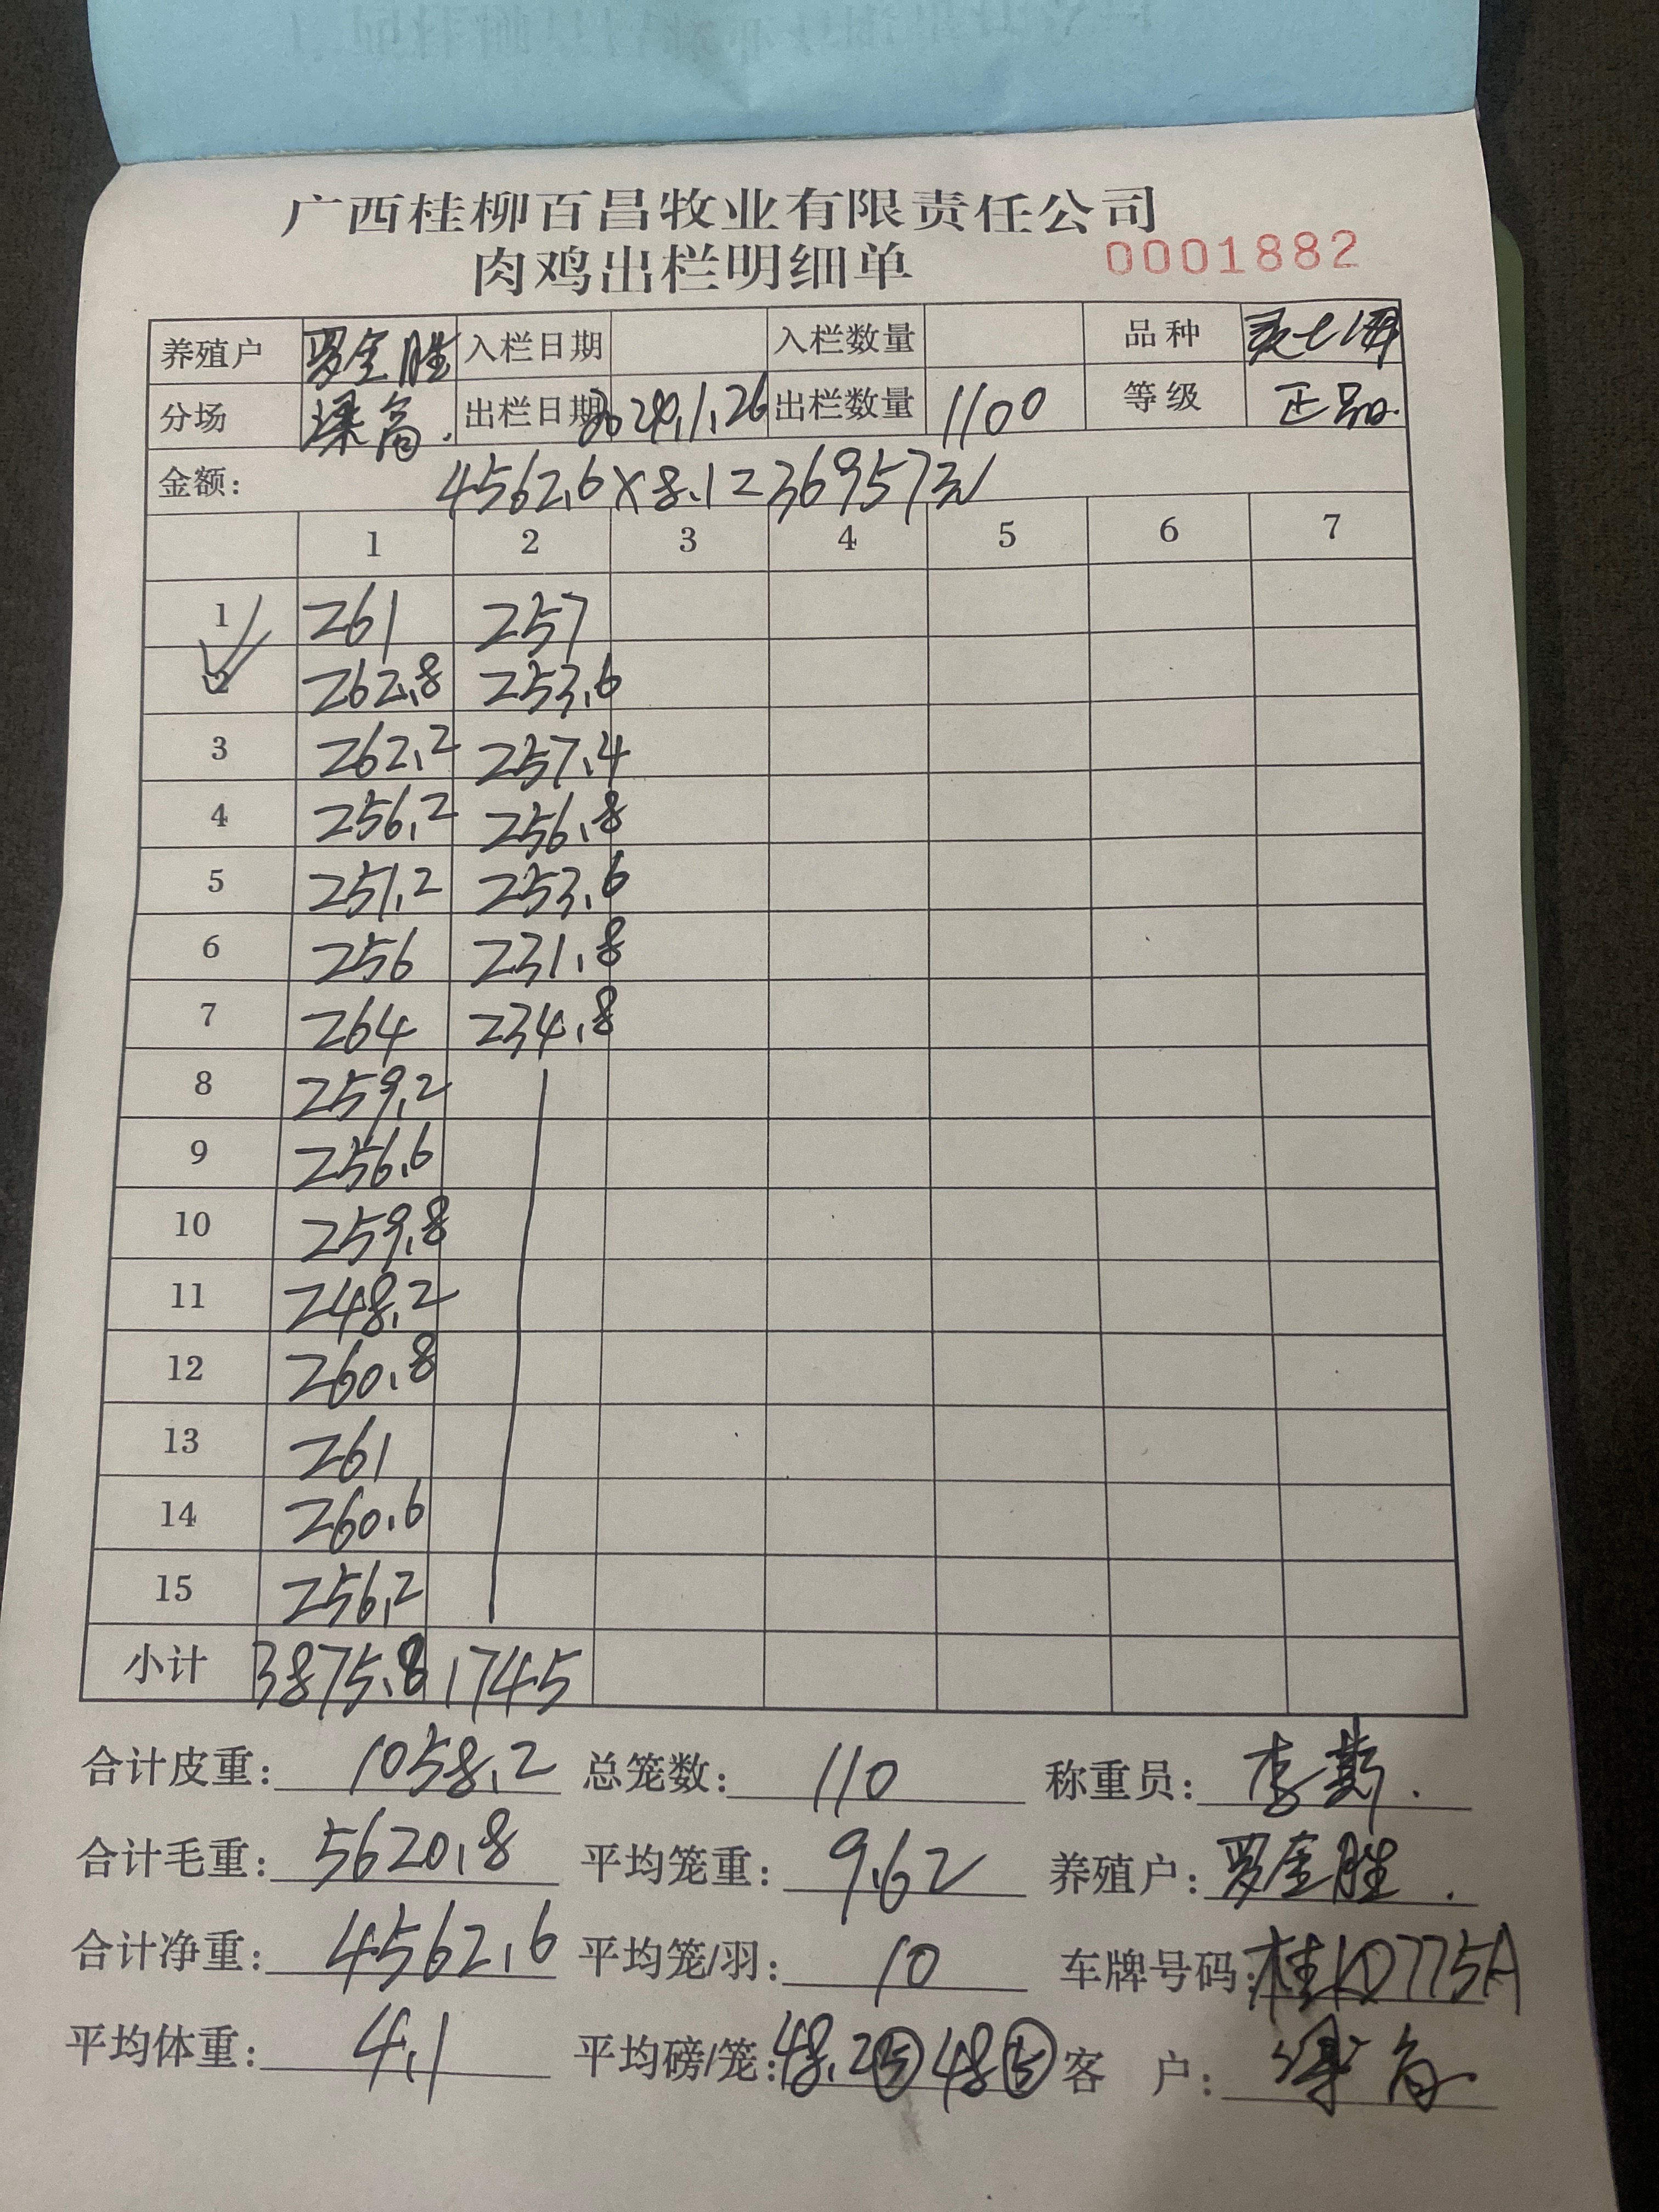 广西桂柳百昌牧业有限责任公司
肉鸡出栏明细单 0001882
养殖户 罗金胜 入栏日期 入栏数量 品种
分场 梁高. 出栏日期 2024.1.26 出栏数量 1100 等级 正品.
金额: 4562.6×8.1=36957元
1 2 3 4 5 6 7
1 261 257
2 262.8 253.6
3 262.2 257.4
4 256.2 256.8
5 251.2 253.6
6 256 231.8
7 264 234.8
8 259.2
9 256.6
10 259.8
11 248.2
12 260.8
13 261
14 260.6
15 256.2
小计 3875.8 1745
合计皮重: 1058.2 总笼数: 110 称重员:
合计毛重: 5620.8 平均笼重: 9.62 养殖户: 罗金胜.
合计净重: 4562.6 平均笼/羽: 10 车牌号码:
平均体重: 4.1 平均磅/笼: 48.2⑤ 48⑤ 客 户: 梁高